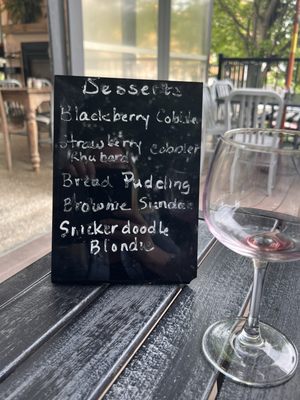 Desserts
Blackberry Cobbler
Strawberry cobbler
Rhubard
Bread Pudding
Brownie Sundae
Snickerdoodle
Blondie